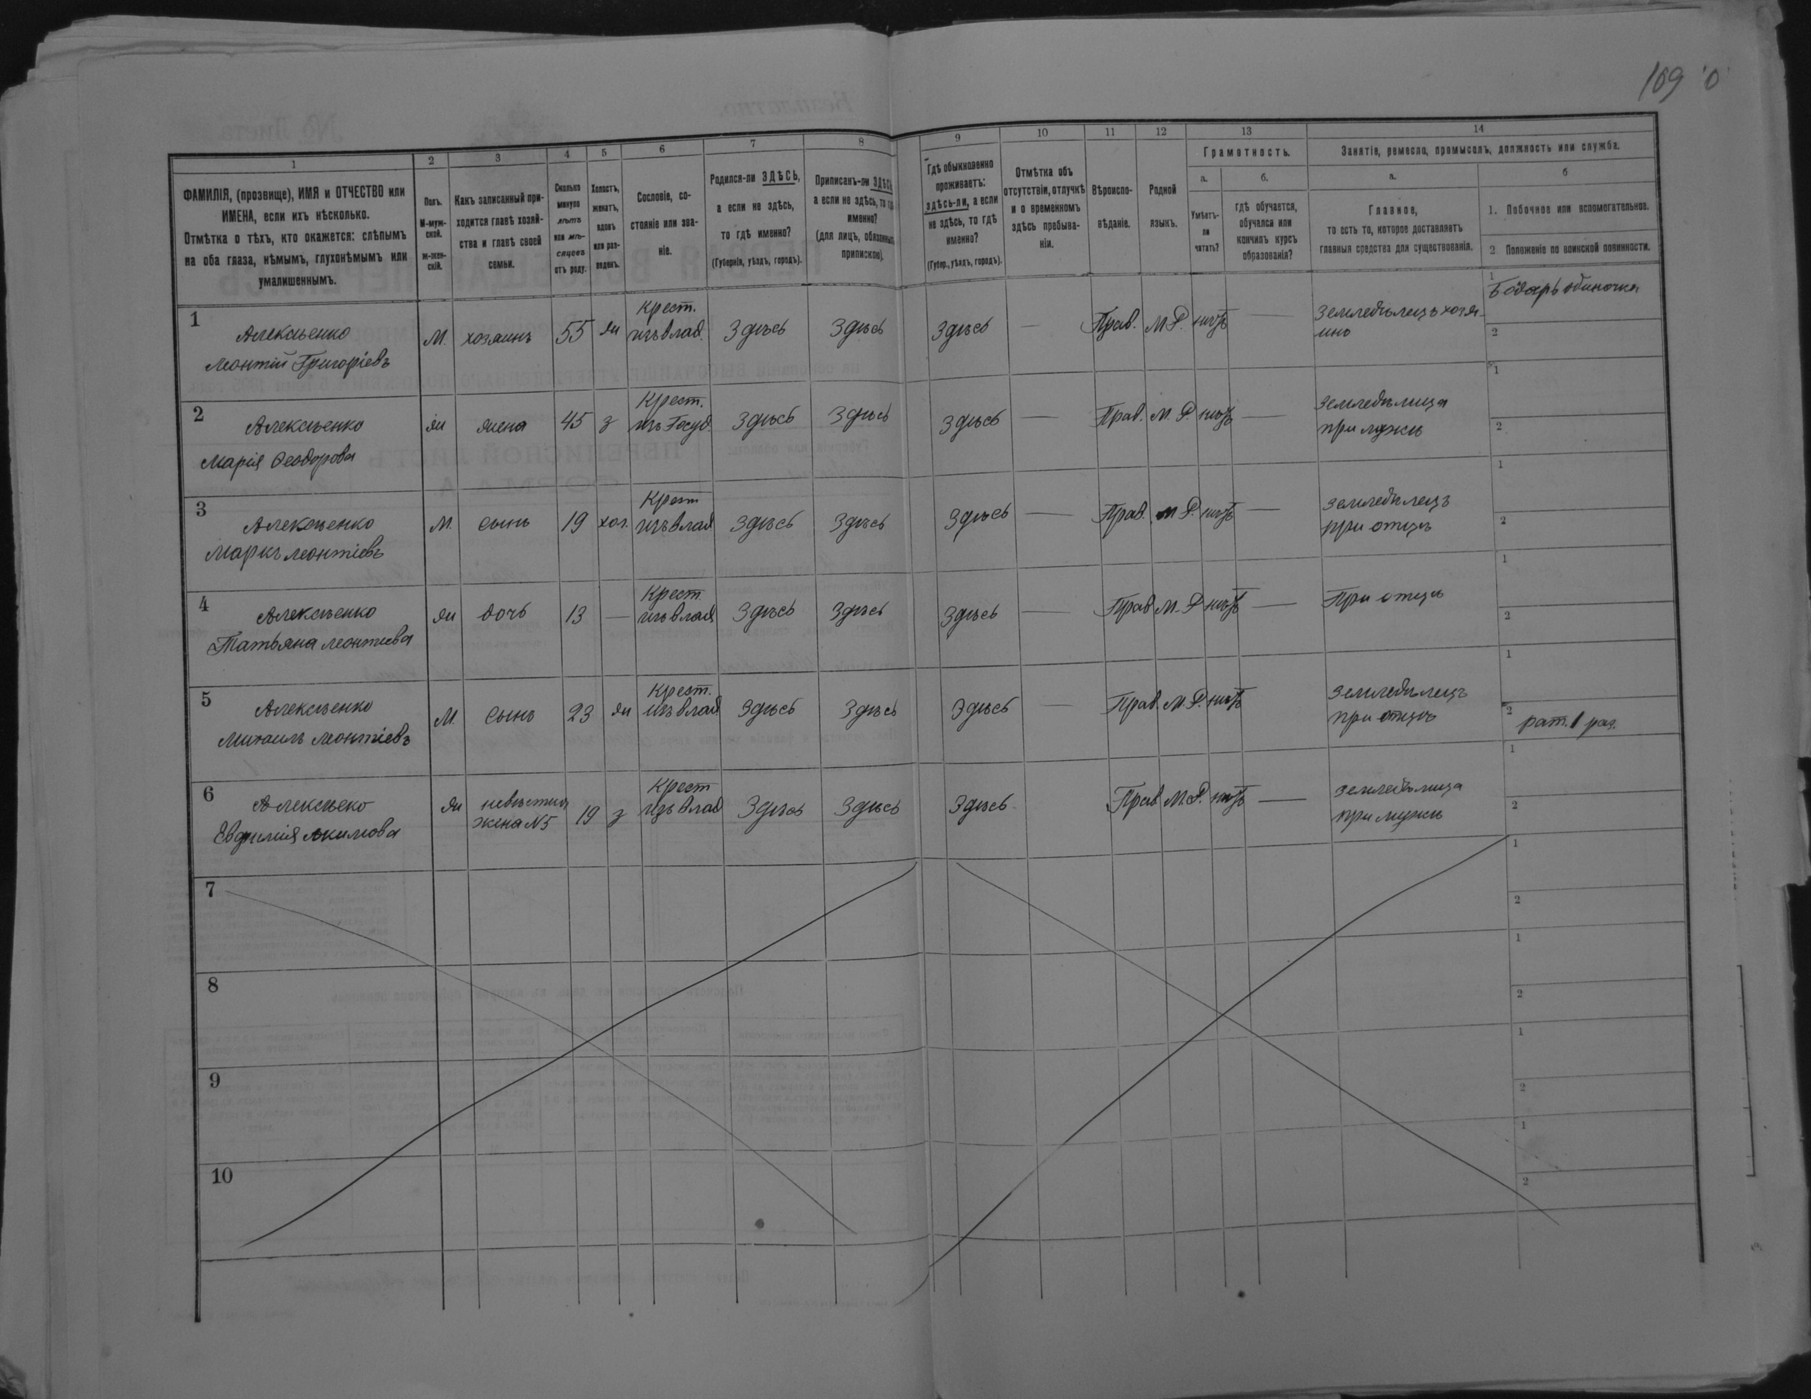 109
1 2 3 4 5 6 7 8 9 10 11 12 13 14
ФАМИЛІЯ, (прозвище), ИМЯ и ОТЧЕСТВО или
ИМЕНА, если ихъ нѣсколько.
Отмѣтка о тѣхъ, кто окажется: слѣпымъ
на оба глаза, нѣмымъ, глухонѣмымъ или
умалишеннымъ.
Полъ.
М-муж-
ской.
ж-жен-
скій.
Какъ записанный при-
ходится главѣ хозяй-
ства и главѣ своей
семьи.
Сколько
минуло
лѣтъ
или мѣ-
сяцевъ
отъ роду.
Холостъ,
женатъ,
вдовъ
или раз-
веденъ.
Сословіе, со-
стояніе или зва-
ніе.
Родился-ли ЗДѢСЬ,
а если не здѣсь,
то гдѣ именно?
(Губернія, уѣздъ, городъ).
Приписанъ-ли ЗДѢСЬ,
а если не здѣсь, то гдѣ
именно?
(для лицъ, обязанныхъ
припиской).
Гдѣ обыкновенно
проживаетъ:
здѣсь-ли, а если
не здѣсь, то гдѣ
именно?
(Губер., уѣздъ, городъ).
Отмѣтка объ
отсутствіи, отлучкѣ
и о временномъ
здѣсь пребыва-
ніи.
Вѣроиспо-
вѣданіе.
Родной
языкъ.
Грамотность.
а.
Умѣетъ-
ли
читать?
б.
гдѣ обучается,
обучался или
кончилъ курсъ
образованія?
Занятіе, ремесло, промыселъ, должность или служба.
а.
Главное,
то есть то, которое доставляетъ
главныя средства для существованія.
б
1. Побочное или вспомогательное.
2 Положеніе по воинской повинности.
1 Алексѣенко М. хозяинъ 55 ж Крест. изъ влад. Здѣсь Здѣсь Здѣсь — Прав. М.Р. нѣтъ — Земледѣлецъ хозя- 1
Леонтій Григоріевъ инъ 2
2 Алексѣенко ж жена 45 з Крест. изъ Госуд. Здѣсь Здѣсь Здѣсь — Прав. М.Р. нѣтъ — Земледѣлица 1
Марія Ѳеодорова при мужѣ 2
3 Алексѣенко М. сынъ 19 хол. Крест изъ влад Здѣсь Здѣсь Здѣсь — Прав. М.Р. нѣтъ — Земледѣлецъ 1
Маркъ Леонтіевъ при отцѣ 2
4 Алексѣенко ж дочь 13 — Крест изъ влад Здѣсь Здѣсь Здѣсь — Прав М.Р. нѣтъ — При отцѣ 1
Татьяна Леонтіева 2
5 Алексѣенко М. сынъ 23 ж Крест. изъ влад Здѣсь Здѣсь Здѣсь — Прав. М.Р. нѣтъ Земледѣлецъ 1
Михаилъ Леонтіевъ при отцѣ 2 рат. 1 раз.
6 Алексѣеко ж невѣстка 19 з Крест изъ влад Здѣсь Здѣсь Здѣсь Прав М.Р. нѣтъ — Земледѣлица 1
Евфимія Акимова жена N5 при мужѣ 2
7 1
2
8 1
2
9 1
2
10 1
2